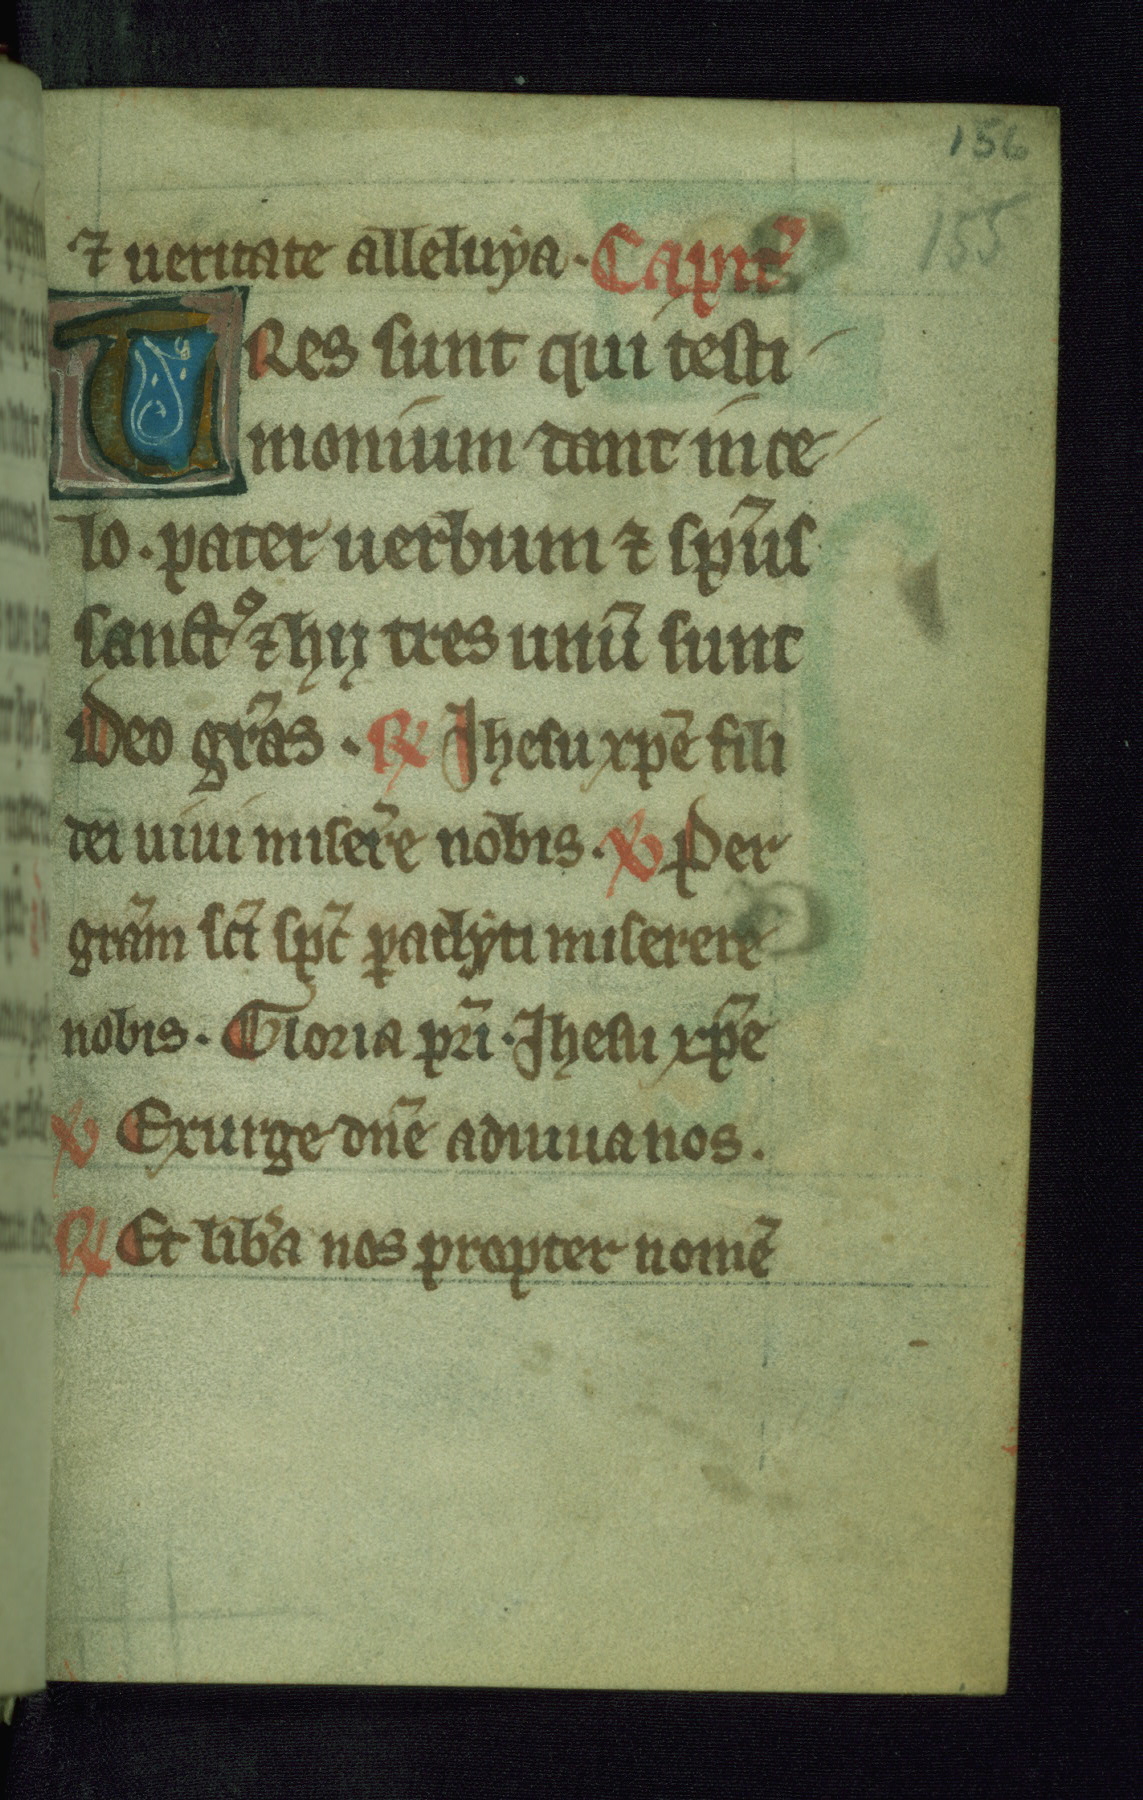 156
155
⁊ ueritate alleluẏa · Capit̄
TRes sunt qui testi
monium dant in ce
lo · pater uerbum ⁊ sp̄us
sanctꝰ ⁊ hij tres unū sunt
Deo gr̄as · ℟ Jhesu xp̄e fili
dei uiui miser̄e nobis · ℣ Per
gr̄am sc̄i sp̄c ꝑaclẏti miserere
nobis · Gloria pr̄i · Jhesu xp̄e
℣ Exurge dn̄e adiuua nos .
℟ Et lib̄a nos propter nomē